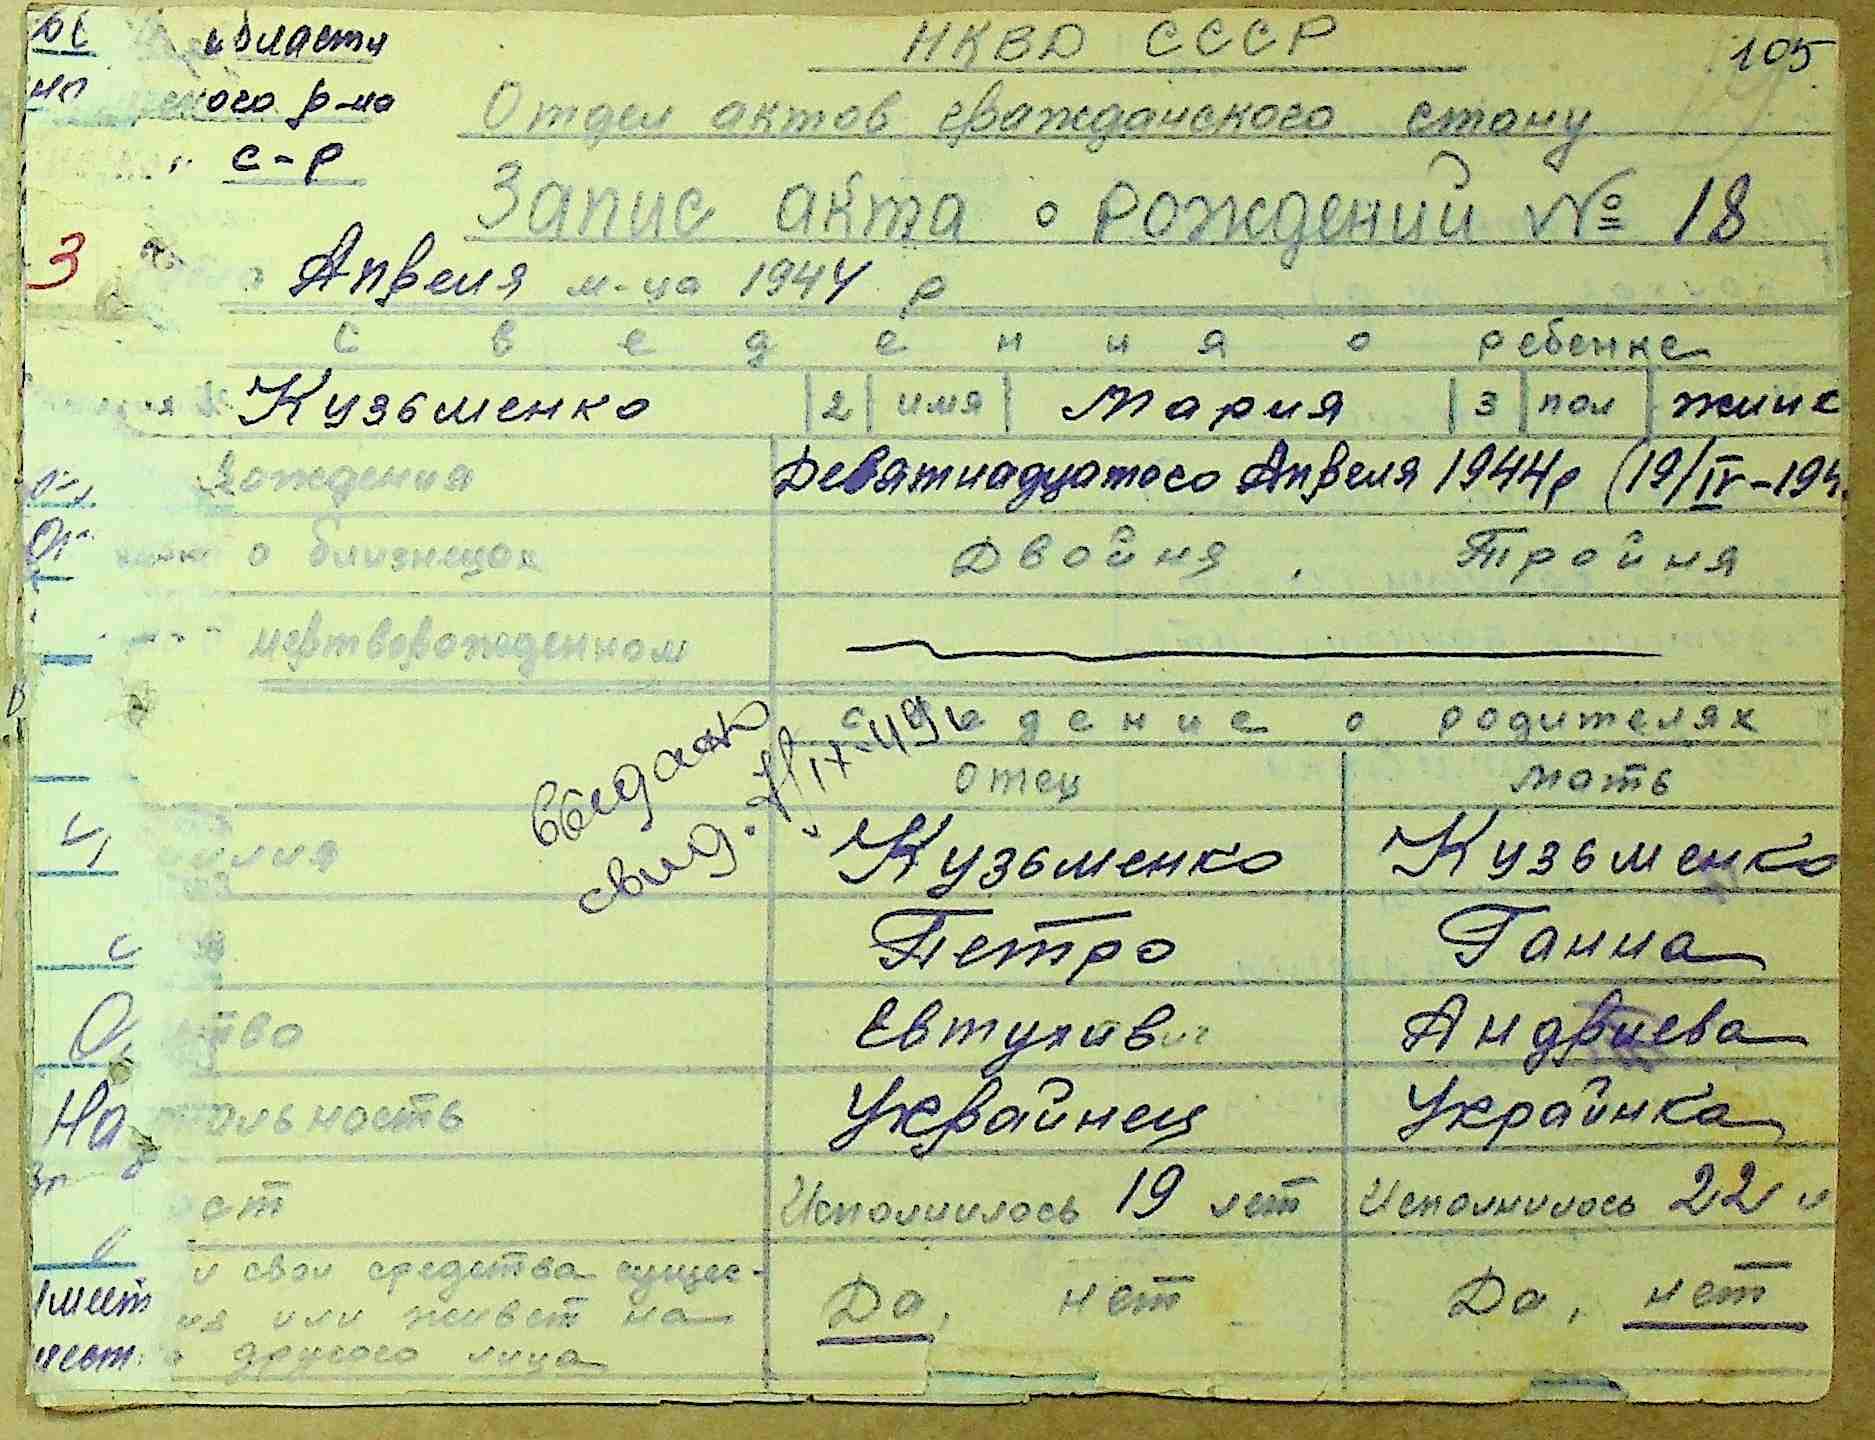 области
НКВД СССР
105
ского р-на
Отдел актов гражданского стану
с-р
Запис акта о рождений № 18
3
Апреля м-ца 1944 р
Сведения о ребенке
Кузьменко 2 имя Мария 3 пол жинк
рождения Девятнадцатого Апреля 1944р (19/IV-194
о близнецах Двойня, Тройня
мертворожденном
дение о родителях
выдано
свид. IX-49г
Отец Мать
Кузьменко Кузьменко
Петро Ганна
ство Евтухивич Андриева
На ональность Украйнец Украйнка
Исполнилось 19 лет Исполнилось 22
и свои средства сущес-
или живет на Да, нет Да, нет
другого лица